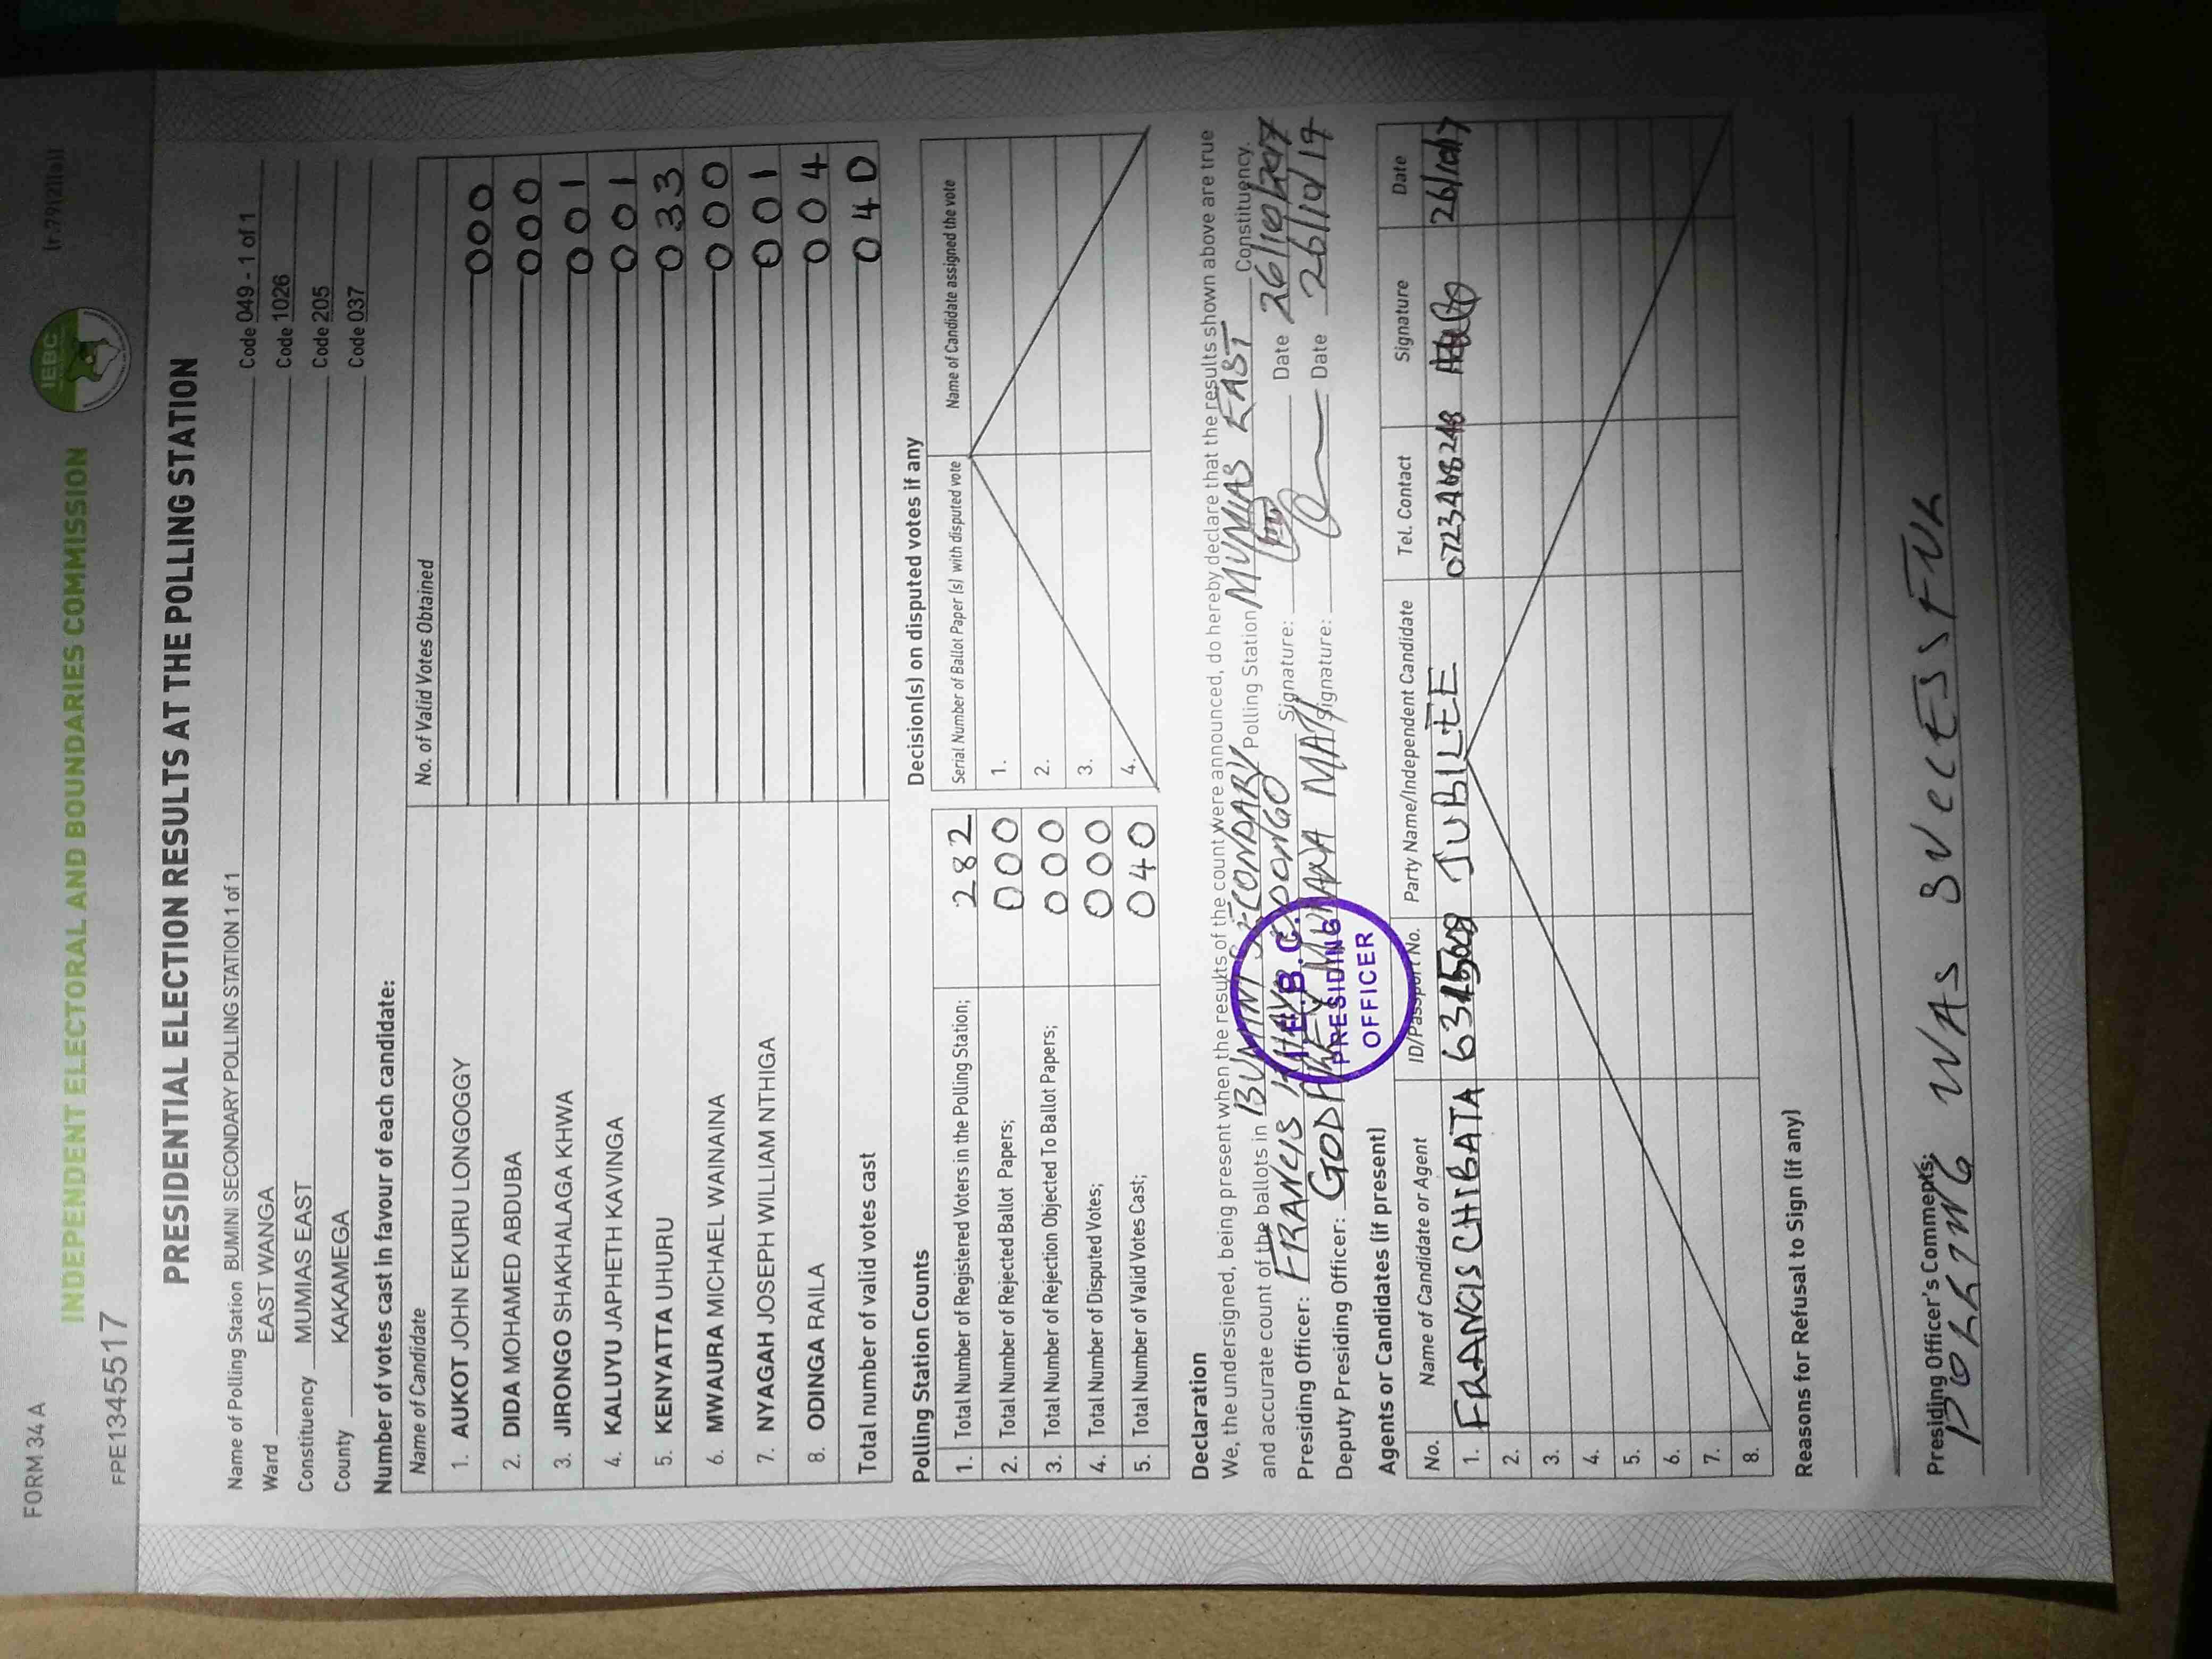 FORM 34 A
(r.79(2)(a))
INDEPENDENT ELECTORAL AND BOUNDARIES COMMISSION
IEBC
FPE1345517
PRESIDENTIAL ELECTION RESULTS AT THE POLLING STATION
Name of Polling Station BUMINI SECONDARY POLLING STATION 1 of 1 Code 049 - 1 of 1
Ward EAST WANGA Code 1026
Constituency MUMIAS EAST Code 205
County KAKAMEGA Code 037
Number of votes cast in favour of each candidate:
Name of Candidate No. of Valid Votes Obtained
1. AUKOT JOHN EKURU LONGOGGY 000
2. DIDA MOHAMED ABDUBA 000
3. JIRONGO SHAKHALAGA KHWA 001
4. KALUYU JAPHETH KAVINGA 001
5. KENYATTA UHURU 033
6. MWAURA MICHAEL WAINAINA 000
7. NYAGAH JOSEPH WILLIAM NTHIGA 001
8. ODINGA RAILA 004
Total number of valid votes cast 040
Polling Station Counts
1. Total Number of Registered Voters in the Polling Station; 282
2. Total Number of Rejected Ballot Papers; 000
3. Total Number of Rejection Objected To Ballot Papers; 000
4. Total Number of Disputed Votes; 000
5. Total Number of Valid Votes Cast; 040
Decision(s) on disputed votes if any
Serial Number of Ballot Paper (s) with disputed vote Name of Candidate assigned the vote
1.
2.
3.
4.
Declaration
We, the undersigned, being present when the results of the count were announced, do hereby declare that the results shown above are true
and accurate count of the ballots in BUMINI SECONDARY Polling Station MUMIAS EAST Constituency.
Presiding Officer: FRANCIS Signature: Date 26/10/2017
Deputy Presiding Officer: Signature: Date 26/10/17
I.E.B.C.
PRESIDING
OFFICER
Agents or Candidates (if present)
No. Name of Candidate or Agent ID/Passport No. Party Name/Independent Candidate Tel. Contact Signature Date
1. FRANCIS CHIBATA JUBILEE 26/10/17
2.
3.
4.
5.
6.
7.
8.
Reasons for Refusal to Sign (if any)
Presiding Officer's Comments:
POLLING WAS SUCCESSFUL